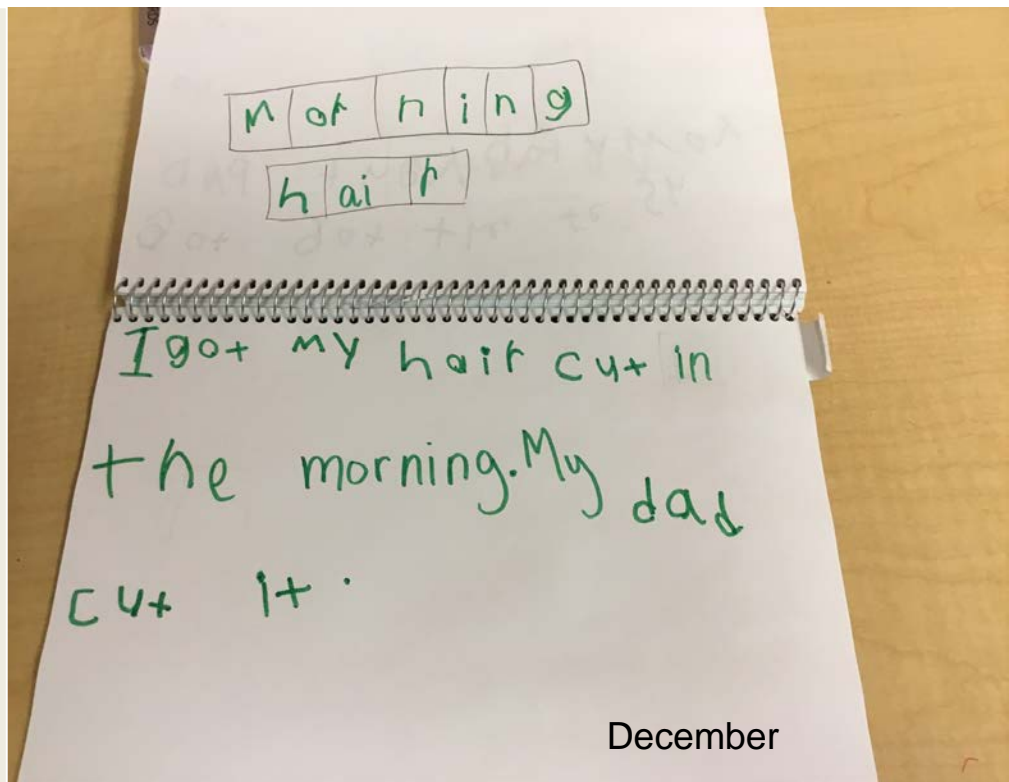 Morning
hair
I got my hair cut in
the morning. My dad
cut it.
December